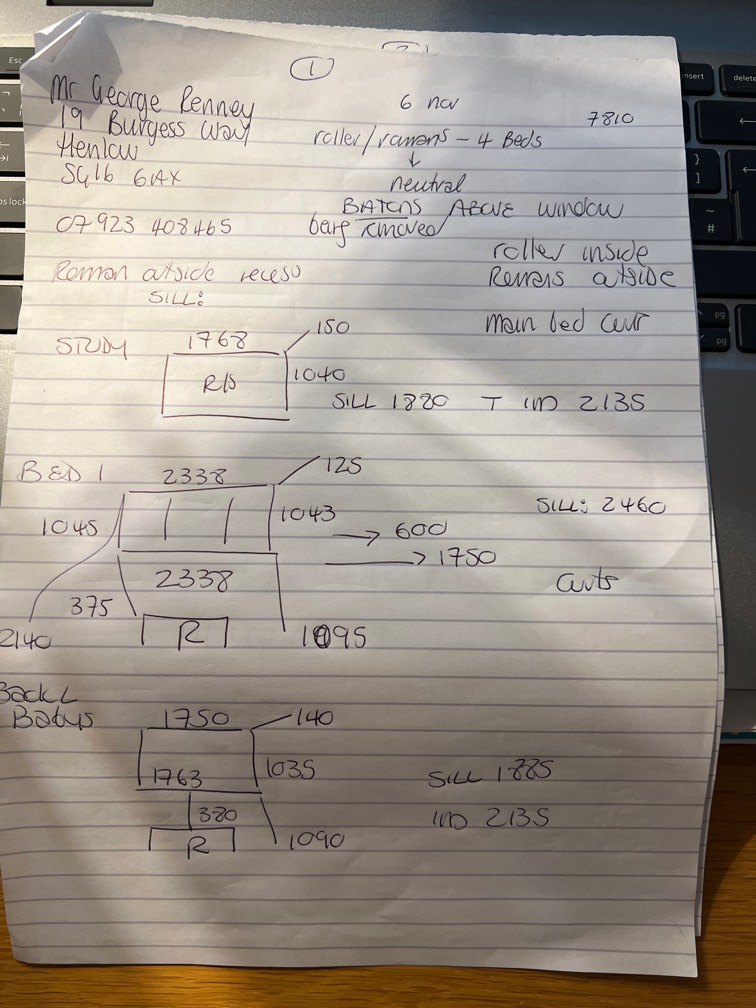 1
Mr George Renney
6 nov
7810
19 Burgess Way
roller/romans - 4 Beds
Henlow
↓
SG16 6AX
neutral
BATONS ABOVE WINDOW
07923 408465
being removed
roller inside
Roman outside recess
Romans outside
SILL:
main bed curt
STUDY
1768
150
R/B
1040
SILL 1880 T IND 2135
BED 1
2338
125
1045
1043
SILL: 2460
→ 600
→ 1750
2338
Curts
375
2140
R
1095
Back L
Babys
1750
140
1763
1035
SILL 1885
380
IND 2135
R
1090
Esc
insert
delete
}
]
~
#
pg
pg